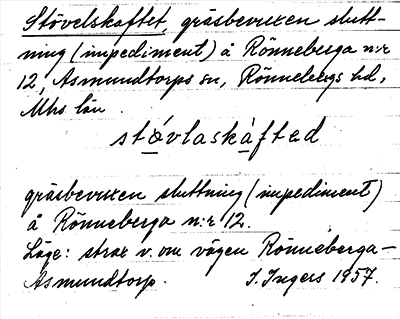 Stövelskaftet, gräsbevuxen slutt-
ning (impediment) å Rönneberga n:r
12, Asmundtorps sn, Rönnebergs hd,
Mhs län.
stövlaskàfted
gräsbevuxen sluttning (impediment)
å Rönneberga n:r 12.
Läge: strax v. om vägen Rönneberga-
Asmundtorp. I. Ingers 1957.